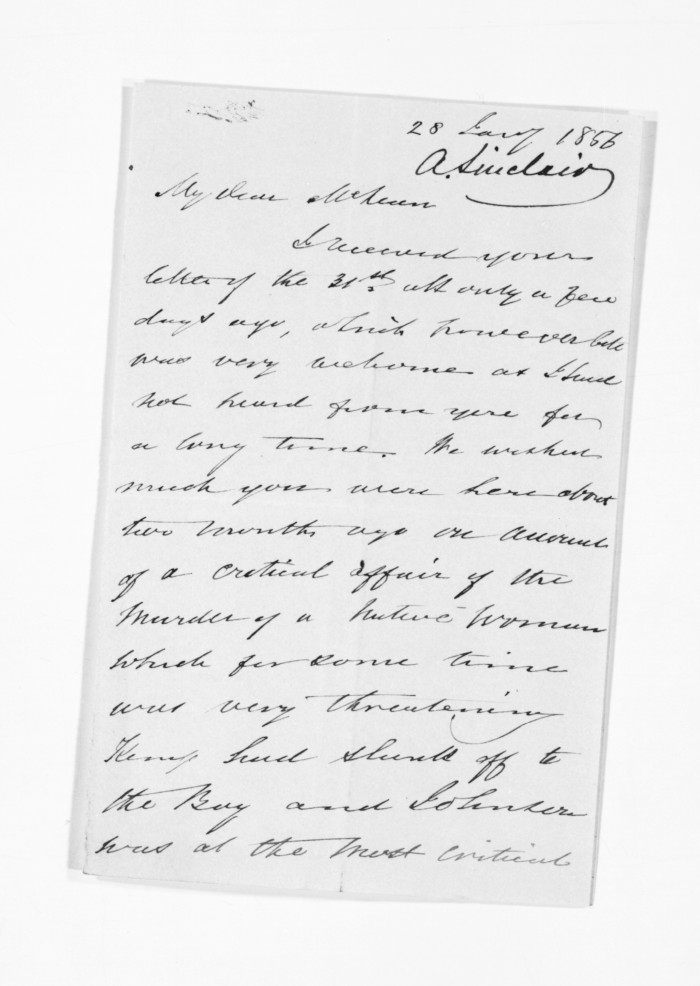 28 Jany 1856
A. Sinclair
My Dear McLean
I received your
letter of the 31st ult only a few
days ago, which however
was very welcome as I had
not heard from you for
a long time. We wished
much you were here about
two months ago on account
of a critical affair of the
Murder of a Native Woman
which for some time
was very threatening
Kemp had slunk off to
the Bay and Johnson
was at the most critical